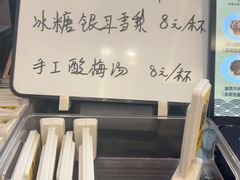 冰糖银耳雪梨 8元/杯
手工酸梅汤 8元/杯